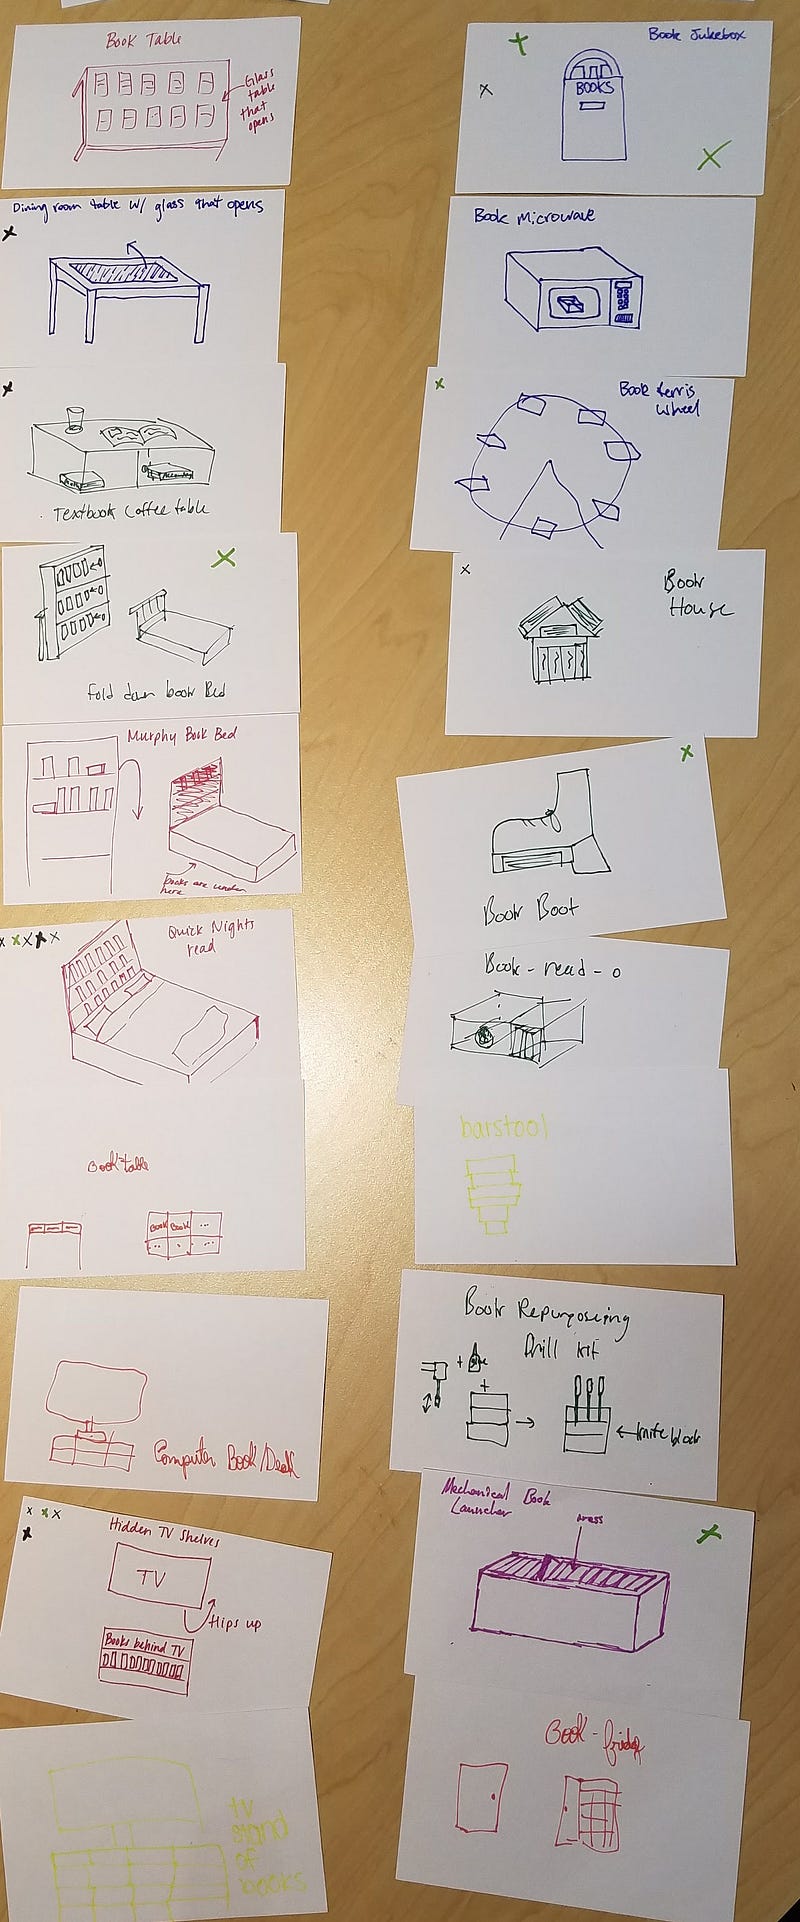 Book Table
Glass
table
that
opens
Dining room table w/ glass that opens
Textbook Coffee table
Fold down book Bed
Murphy Book Bed
books are under
here
Quick Nights
read
Book-table
Book Book ...
Computer Book/Desk
Hidden TV Shelves
TV
flips up
Books behind TV
tv
stand
of
books
Book Jukebox
BOOKS
Book Microwave
Book ferris
wheel
Book
House
Book Boot
Book-read-o
barstool
Book Repurposing
Drill kit
+ glue
+
knife block
Mechanical Book
Launcher
press
Book-fridge